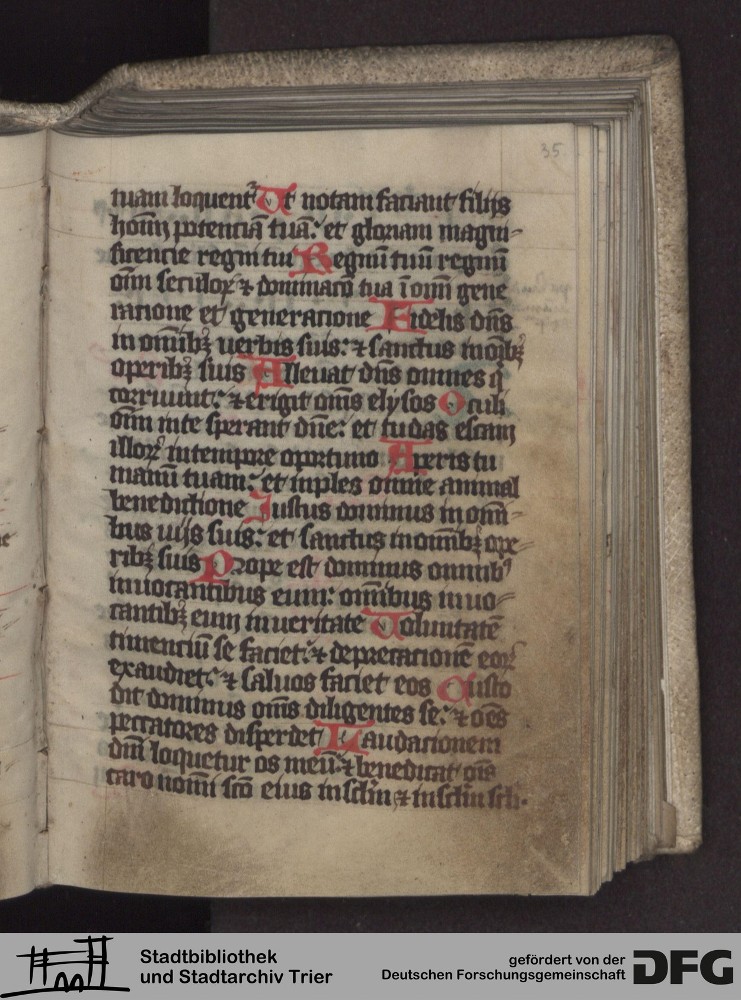 35
tuam loquent᷑ Ut notam faciant filijs
hoīm potenciā tuā: et gloriam magni-
ficencie regni tui Regnū tuū regnū
oīm seculoꝝ ⁊ dominacō tua ī omī gene
ratione et generacione Fidelis dn̄s
in omībꝫ uerbis suis: ⁊ sanctus in oībꝫ
operibꝫ suis Alleuat dn̄s omnes q̄
corruunt: ⁊ erigit om̄s elysos Oculi
oīm in te sperant dn̄e: et tu das escam
illoꝝ in tempore oportuno Aperis tu
manū tuam: et inples omne animal
benedictione Justus dominus in omī-
bus uijs suis: et sanctus in omībꝫ ope-
ribꝫ suis Prope est dominus omnibꝰ
inuocantibus eum: omībus inuo-
cantibꝫ eum in ueritate Voluntatē
timenciū se faciet: ⁊ deprecacionē eoꝝ
exaudiet: ⁊ saluos faciet eos Custo
dit dominus om̄s diligentes se: ⁊ oēs
peccatores disperdet Laudacionem
dn̄i loquetur os meū: ⁊ benedicat oīs
caro nomī scō eius in sclm̄ ⁊ in sclm̄ scli.
Stadtbibliothek
und Stadtarchiv Trier
gefördert von der
Deutschen Forschungsgemeinschaft
DFG